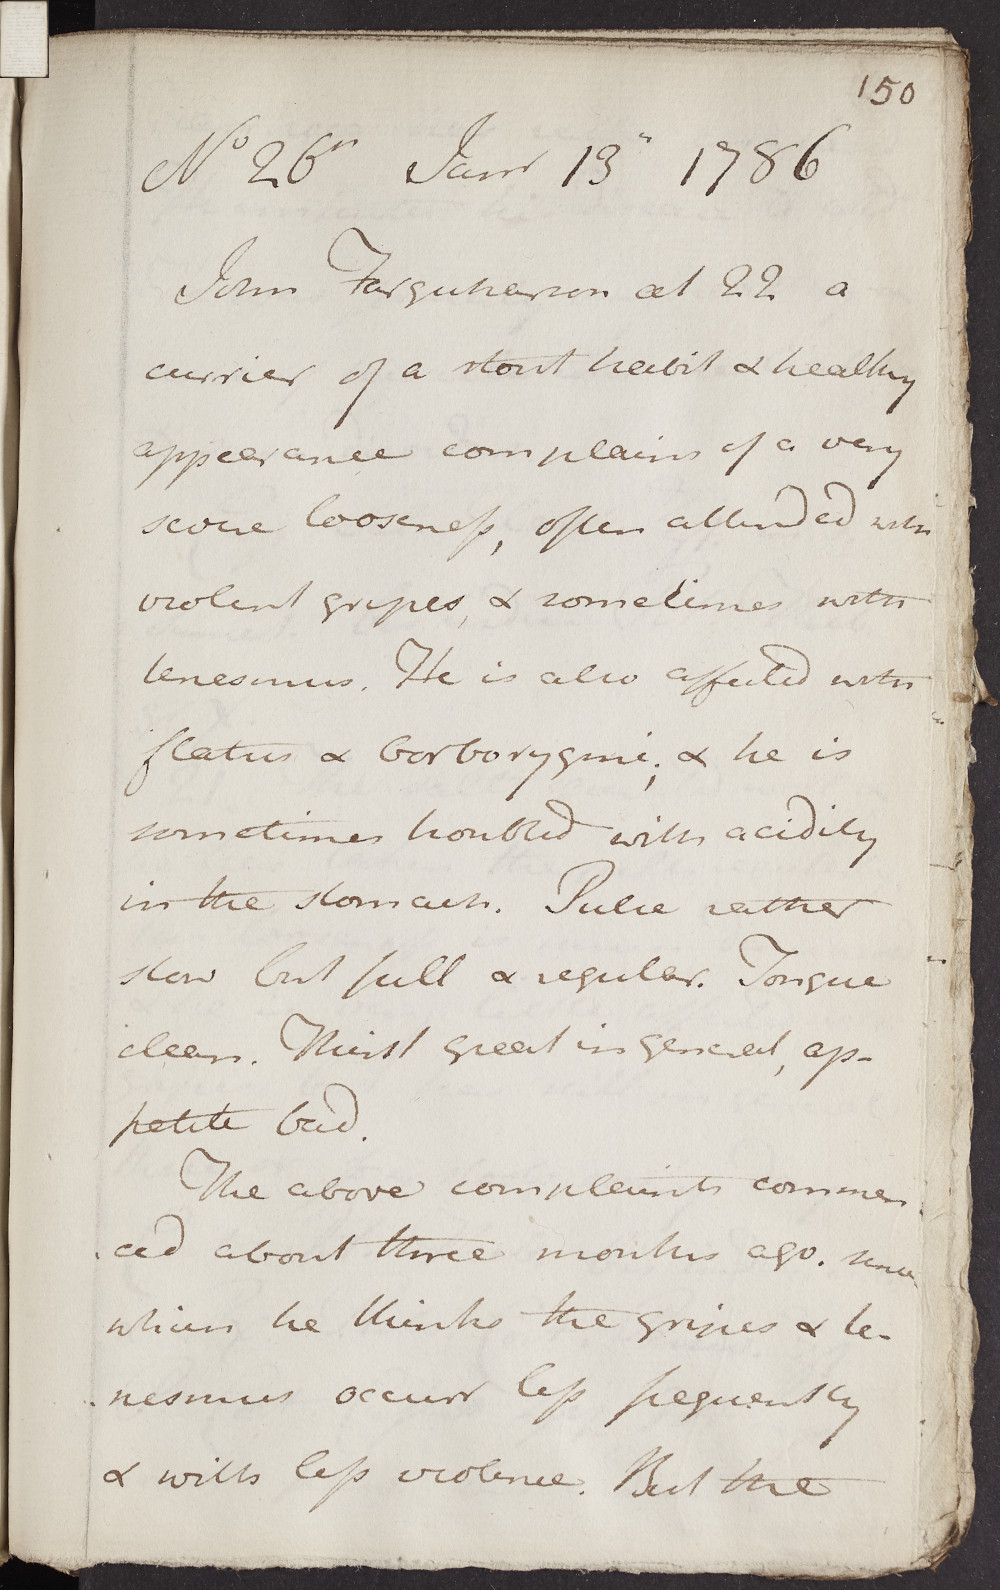 150
No 26" Janr 13" 1786
John Farquharson æt 22 a
currier of a stout habit & healthy
appearance complains of a very
severe looseness, often attended with
violent gripes, & sometimes with
tenesmus. He is also affected with
flatus & borborygmi; & he is
sometimes troubled with acidity
in the stomach. Pulse rather
slow but full & regular. Tongue
clean. Thirst great in general, ap-
petite bad.
The above complaints commen
ced about three months ago. since
which he thinks the gripes & te-
nesmus occurr less frequently
& with less violence. But the